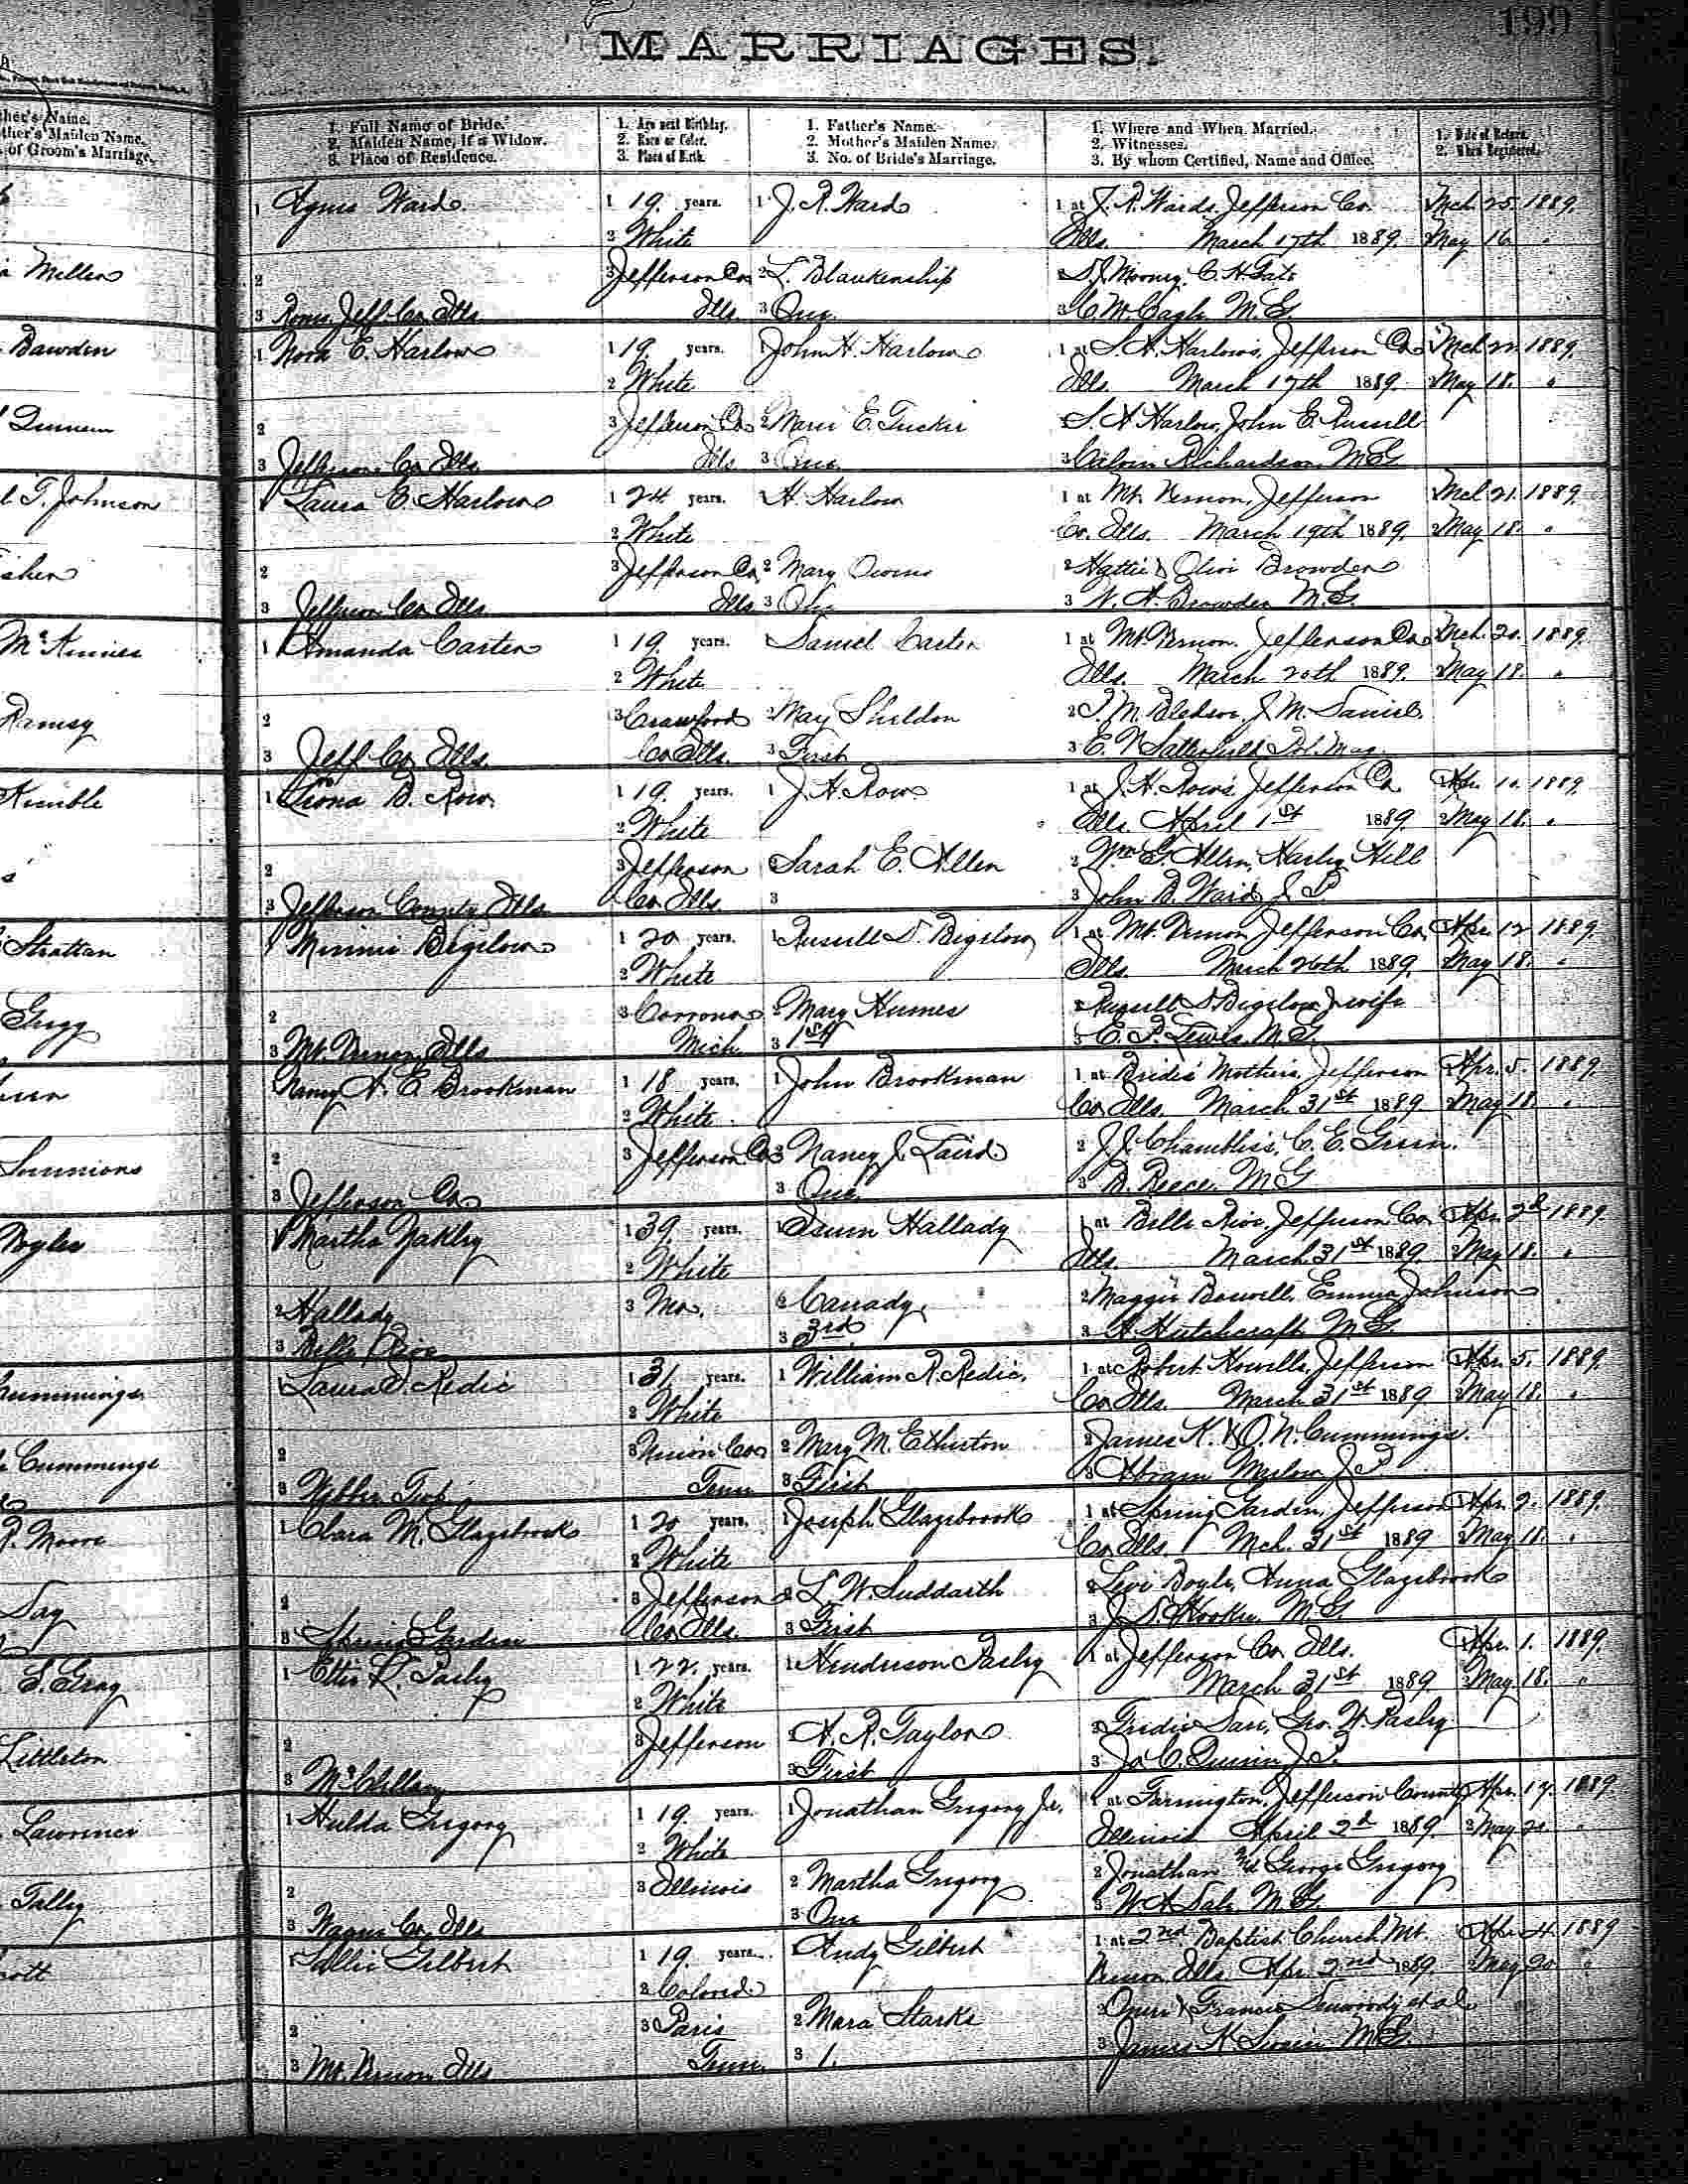 199
MARRIAGES.
her's Name.
ther's Maiden Name.
of Groom's Marriage.
1. Full Name of Bride.
2. Maiden Name, if a Widow.
3. Place of Residence.
1. Age next Birthday.
2. Race or Color.
3. Place of Birth.
1. Father's Name.
2. Mother's Maiden Name.
3. No. of Bride's Marriage.
1. Where and When Married.
2. Witnesses.
3. By whom Certified, Name and Office.
1. Date of Return.
2. When Registered.
1 Agnes Ward 1 19 years. 1 J. R. Ward 1 at J. R. Wards Jefferson Co. Mch 25. 1889.
2 White Ills. March 17th 1889. 2 May 16. "
Miller 2 3 Jefferson Co. 2 L. Blankenship 2 S. J. Mooney, C. H.
3 Rome Jeff. Co. Ills. Ills. 3 One 3 C. M. Cagle M. G.
Bawden 1 Nora E. Harlow 1 19 years. 1 John H. Harlow 1 at S. H. Harlow's, Jefferson Co. Mch 22. 1889.
2 White Ills. March 17th 1889. 2 May 18. "
2 3 Jefferson Co. 2 E. Tucker 2 S. H. Harlow, John E. Russell
3 Jefferson Co. Ills. Ills. 3 One 3 Calvin Richardson M. G.
T. Johnson 1 Laura E. Harlow 1 24 years. 1 H. Harlow 1 at Mt. Vernon, Jefferson Mch 21. 1889.
2 White Co. Ills. March 19th 1889. 2 May 18. "
2 3 Jefferson Co. 2 Mary Owens 2 Hattie & Olive Browder
3 Jefferson Co. Ills. Ills. 3 3 W. H. Browder M. G.
1 Amanda Carter 1 19 years. 1 Daniel Carter 1 at Mt. Vernon, Jefferson Co. Mch. 20. 1889.
2 White Ills. March 20th 1889. 2 May 18. "
Ramsy 2 3 Crawford 2 May Sheldon 2 T. M. Bledsoe, J. M. Daniel.
3 Jeff. Co. Ills. Co. Ills. 3 First 3 E. N. Satterfield Pol. Mag.
Kimble 1 B. Row 1 19 years. 1 J. H. Row 1 at J. H. Row's Jefferson Co. 1 Apr. 10. 1889.
2 White Ills. April 1st 1889. 2 May 18. "
2 3 Jefferson 2 Sarah E. Allen 2 Wm G. Allen, Harley Hill
3 Jefferson County Ills. Co. Ills. 3 3 John B. Ward J. P.
Strattan 1 Minnie Bigelow 1 20 years. 1 Russell D. Bigelow 1 at Mt. Vernon, Jefferson Co. Apr. 12 1889.
2 White Ills. March 26th 1889. 2 May 18. "
Gregg 2 3 Corrona 2 Mary Humes 2 Russell D. Bigelow & wife
3 Mt. Vernon Ills. Mich. 3 1st 3 C. P. Lewis, M. G.
Nancy A. E. Brookman 1 18 years. 1 John Brookman 1 at Bride's Mothers, Jefferson Apr. 5. 1889
2 White Co. Ills. March 31st 1889. 2 May 18 "
2 3 Jefferson Co. 2 Nancy J. Laird 2 J. J. Chambliss, C. E. Green.
3 Jefferson Co. 3 One 3 B. Reece, M. G.
1 Martha Yakley 1 39 years. 1 Hallady 1 at Belle Rive, Jefferson Co. Apr. 2d 1889
2 White Ills. March 31st 1889. 2 May 18. "
2 Hallady 3 Mo. 2 Canady 2 Maggie Boswell, Emma Johnson
3 Belle Rive 3 3rd 3 H. Hutchcraft, M. G.
Cummings 1 Laura Redic 1 31 years. 1 William R. Redic. 1 at Robert Howells, Jefferson Apr. 5. 1889.
2 White Co. Ills. March 31st 1889 2 May 18. "
Cummings 2 3 Union Co. 2 Mary M. Etherton 2 James K. & O. N. Cummings.
3 Webber Twp. Tenn. 3 First 3 J. P.
Moore 1 Clara M. Glazebrook 1 20 years. 1 Joseph Glazebrook 1 at Spring Garden, Jefferson Apr. 2. 1889.
2 White Co. Ills. Mch. 31st 1889 2 May 18. "
2 3 Jefferson 2 L. W. Suddarth 2 Levi Boyle, Anna Glazebrook
3 Spring Garden Co. Ills. 3 First 3 J. D. Hooker M. G.
1 Pasley 1 22 years. 1 Henderson Pasley 1 at Jefferson Co. Ills. Apr. 1. 1889.
2 White March 31st 1889 2 May 18. "
Littleton 2 3 Jefferson 2 A. R. Taylor 2 Geo. W. Pasley
3 McClellan 3 First 3 J. P.
Lawrence 1 Hulda Gregory 1 19. years. 1 Jonathan Gregory Jr. 1 at Farmington, Jefferson County Apr. 17. 1889
2 White Illinois April 2d 1889. 2 May 20 "
2 3 Illinois 2 Martha Gregory 2 Jonathan and George Gregory
3 Wayne Co. Ills. 3 One 3 M. G.
1 Sallie Gilbert 1 19. years. 1 Andy Gilbert 1 at 2nd Baptist Church Mt. Apr. 4. 1889
2 Colored Vernon Ills. Apr. 2nd 1889. 2 May 20. "
2 3 Paris 2 Mara Starks
3 Mt. Vernon Ills Tenn. 3 1. 3 James K. M. G.